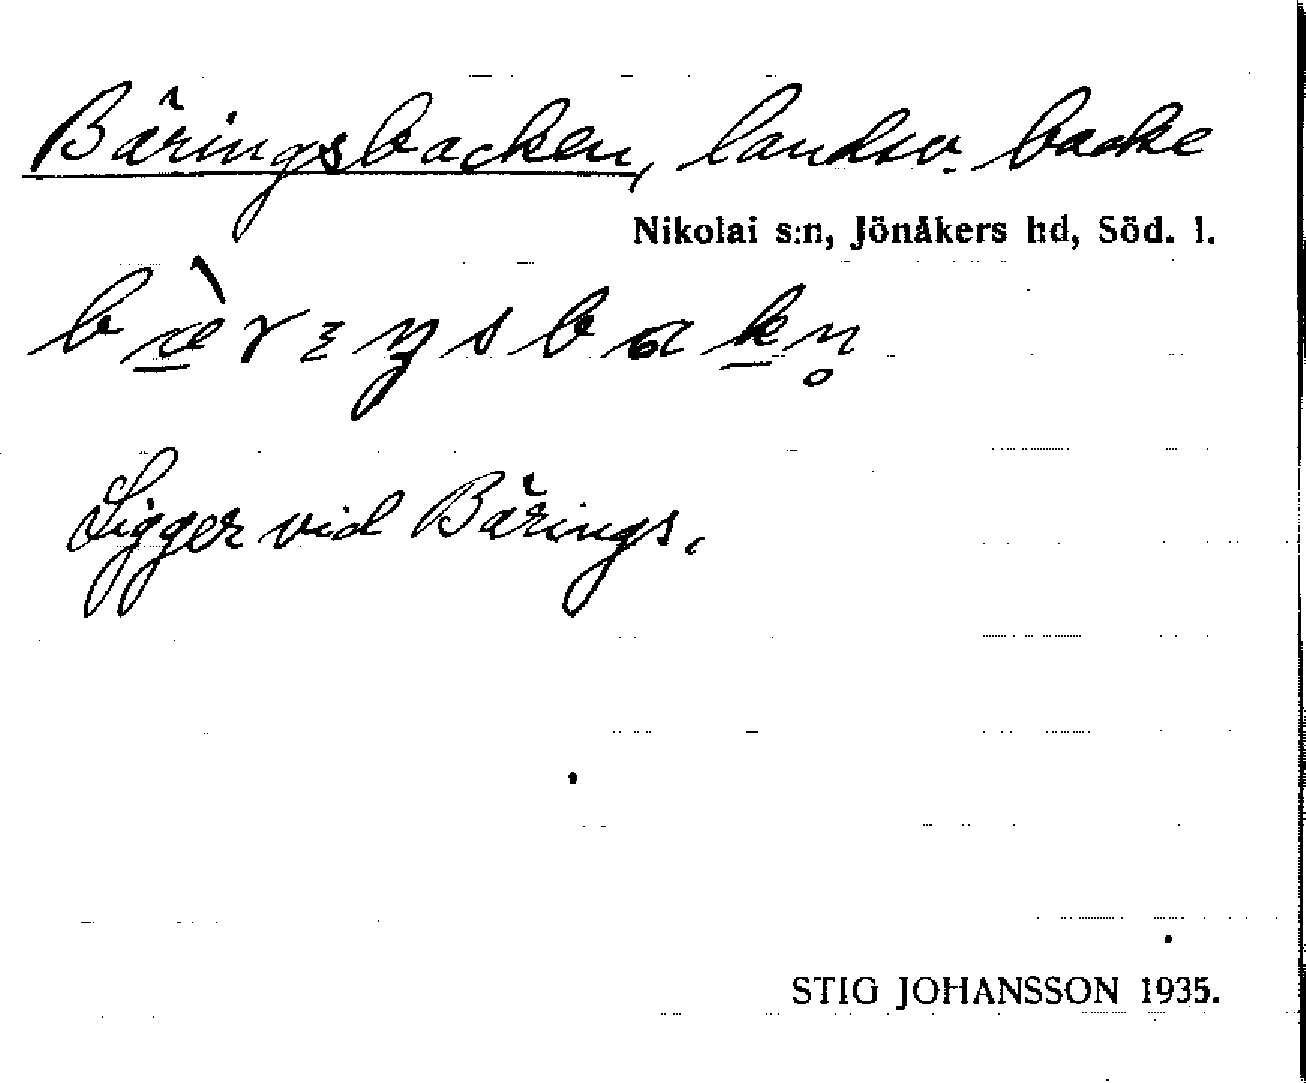 Bäringsbacken, landsv. backe
Nikolai s:n, Jönåkers hd, Söd. l.
bæ̠̀rɛŋsbɑk̠n̥
Ligger vid Bärings.
STIG JOHANSSON 1935.